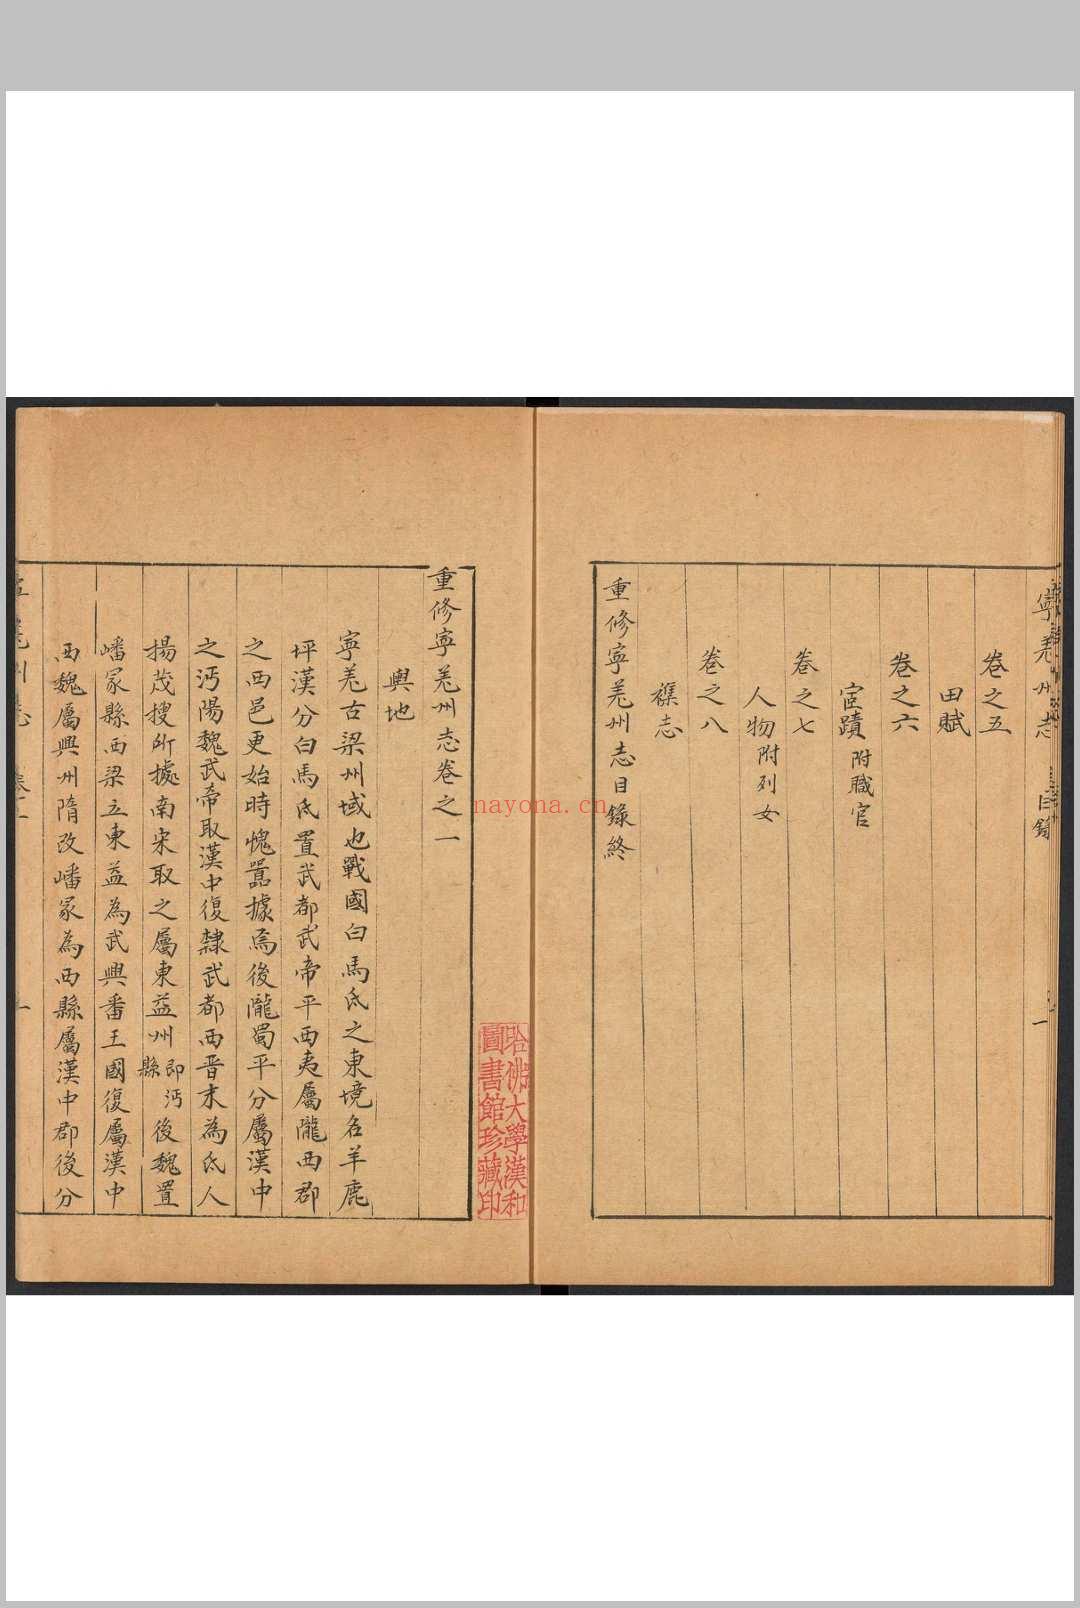 寧羌州志
目錄
一
卷之五
田賦
卷之六
宦蹟附職官
卷之七
人物附列女
卷之八
襍志
重修寧羌州志目錄終
重修寧羌州志卷之一
輿地
寧羌古梁州域也戰國白馬氐之東境名羊鹿
坪漢分白馬氐置武都武帝平西夷屬隴西郡
之西邑更始時愧囂據焉後隴蜀平分屬漢中
之沔陽魏武帝取漢中復隸武都西晋末為氐人
楊茂搜所據南宋取之屬東益州即沔縣後魏置
嶓冢縣西梁立東益為武興番王國復屬漢中
西魏屬興州隋改嶓冢為西縣屬漢中郡後分
一
哈佛大學漢和
圖書館珍藏印
nayona.cn